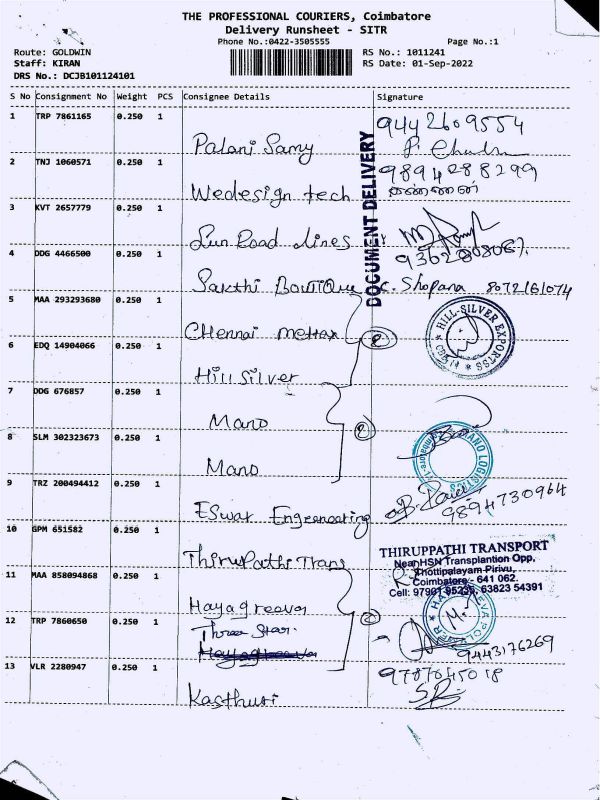 THE PROFESSIONAL COURIERS, Coimbatore
Delivery Runsheet - SITR
Phone No.:0422-3505555 Page No.:1
Route: GOLDWIN RS No.: 1011241
Staff: KIRAN RS Date: 01-Sep-2022
DRS No.: DCJB101124101
S No Consignment No Weight PCS Consignee Details Signature
1 TRP 7861165 0.250 1 Palani Samy 9442609554
DOCUMENT DELIVERY
2 TNJ 1060571 0.250 1 Wedesign tech 9894288299
3 KVT 2657779 0.250 1 Sun Road Lines
4 DDG 4466500 0.250 1 Sakthi Boutique C. Shopana 8072161074
5 MAA 293293680 0.250 1 Chennai
HILL-SILVER EXPORTS
6 EDQ 14904066 0.250 1 Hill Silver
7 DDG 676857 0.250 1 Mano
8 SLM 302323673 0.250 1 Mano
MANO LOGISTICS
9 TRZ 200494412 0.250 1 Eswar Engeneering 9894730964
10 GPM 651582 0.250 1 Thirupathi Trans
THIRUPPATHI TRANSPORT
Near HSN Transplantion Opp,
Thottipalayam Pirivu,
Coimbatore - 641 062.
Cell: 97901 95235, 63823 54391
11 MAA 858094868 0.250 1 Hayagreeva
12 TRP 7860650 0.250 1 Three Star
9443176269
13 VLR 2280947 0.250 1 Kasthuri